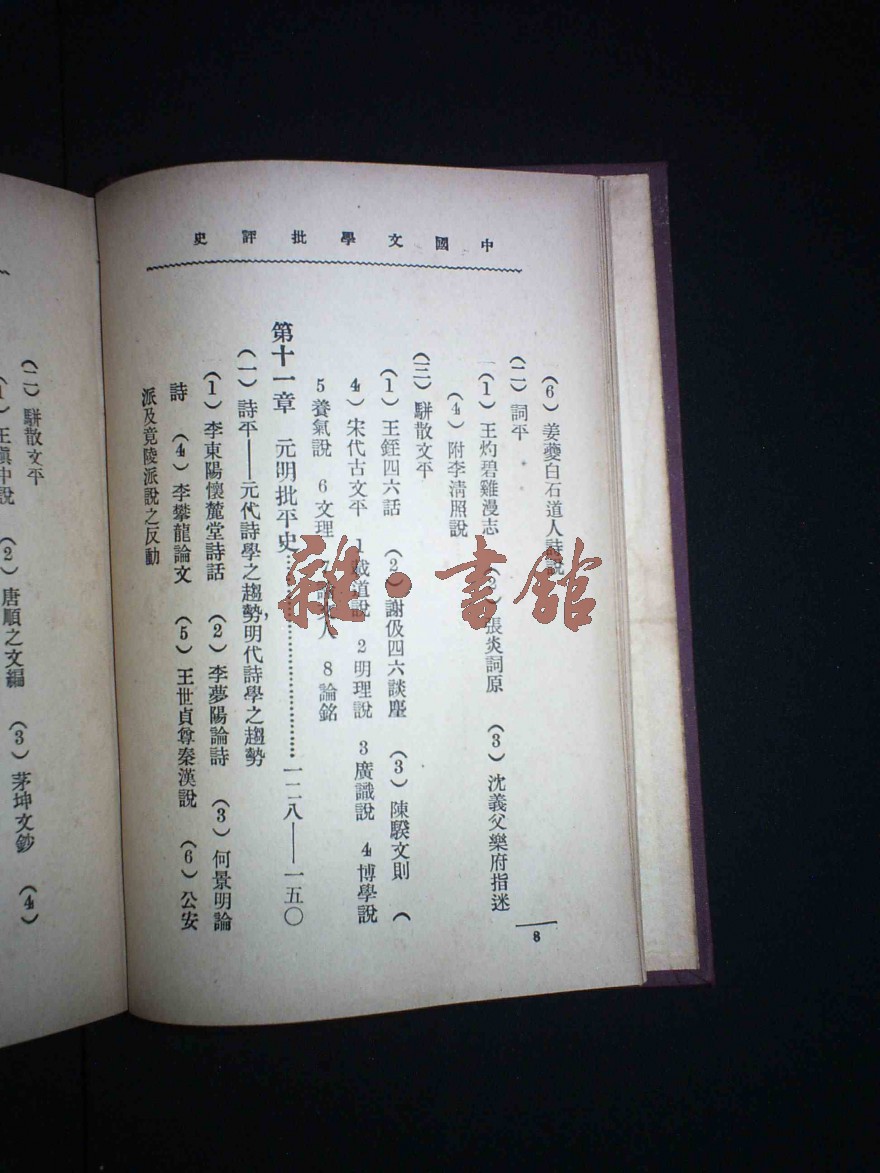 中國文學批評史
(6)姜夔白石道人詩說
(二)詞平
(1)王灼碧雞漫志 (2)張炎詞原 (3)沈義父樂府指迷
(4)附李清照說
(三)駢散文平
(1)王銍四六話 (2)謝伋四六談麈 (3)陳騤文則 (
4)宋代古文平 1載道說 2明理說 3廣識說 4博學說
5養氣說 6文理 7 人 8論銘
第十一章 元明批平史……………………一二八——一五〇
(一)詩平——元代詩學之趨勢明代詩學之趨勢
(1)李東陽懷麓堂詩話 (2)李夢陽論詩 (3)何景明論
詩 (4)李攀龍論文 (5)王世貞尊秦漢說 (6)公安
派及竟陵派說之反動
8
(二)駢散文平
(1)王慎中說 (2)唐順之文編 (3)茅坤文鈔 (4)
雜·書館